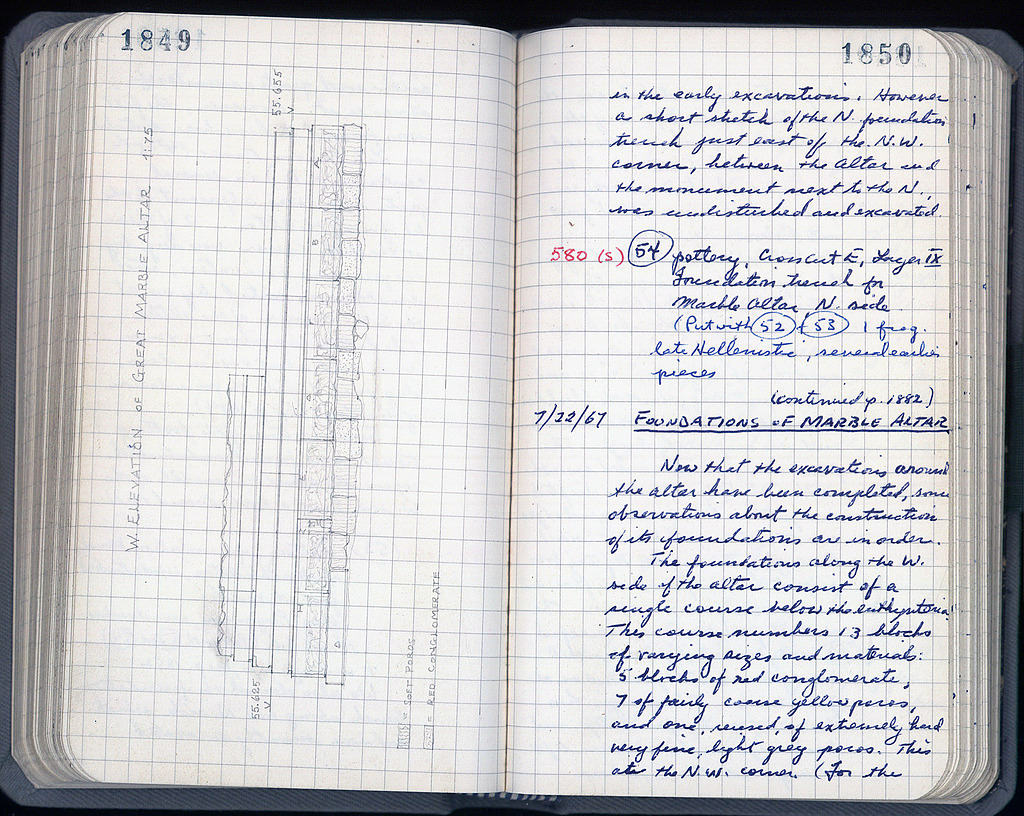 1849
W. ELEVATION OF GREAT MARBLE ALTAR 1:75
55.655
V
A
B
55.625
V
= SOFT POROS
= RED CONGLOMERATE
1850
in the early excavations. However
a short stretch of the N. foundation
trench just east of the N.W.
corner, between the altar and
the monument next to the N.,
was undisturbed and excavated.
580 (s) 54 pottery, Crosscut E, Layer IX
Foundation trench for
Marble Altar, N. side
(Put with 52 + 53 1 frag.
late Hellenistic, several earlier
pieces
(continued p. 1882)
7/22/67 FOUNDATIONS OF MARBLE ALTAR
Now that the excavations around
the altar have been completed, some
observations about the construction
of its foundations are in order.
The foundations along the W.
side of the altar consist of a
single course below the euthynteria.
This course numbers 13 blocks
of varying sizes and materials:
5 blocks of red conglomerate,
7 of fairly coarse yellow poros,
and one, reused, of extremely hard
very fine, light grey poros. This
at the N.W. corner. (For the